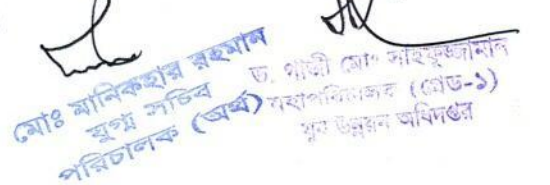 মোঃ মানিকহার রহমান
যুগ্ম সচিব
পরিচালক (অর্থ)
ড. গাজী মোঃ সাইফুজ্জামান
মহাপরিচালক (গ্রেড-১)
যুব উন্নয়ন অধিদপ্তর